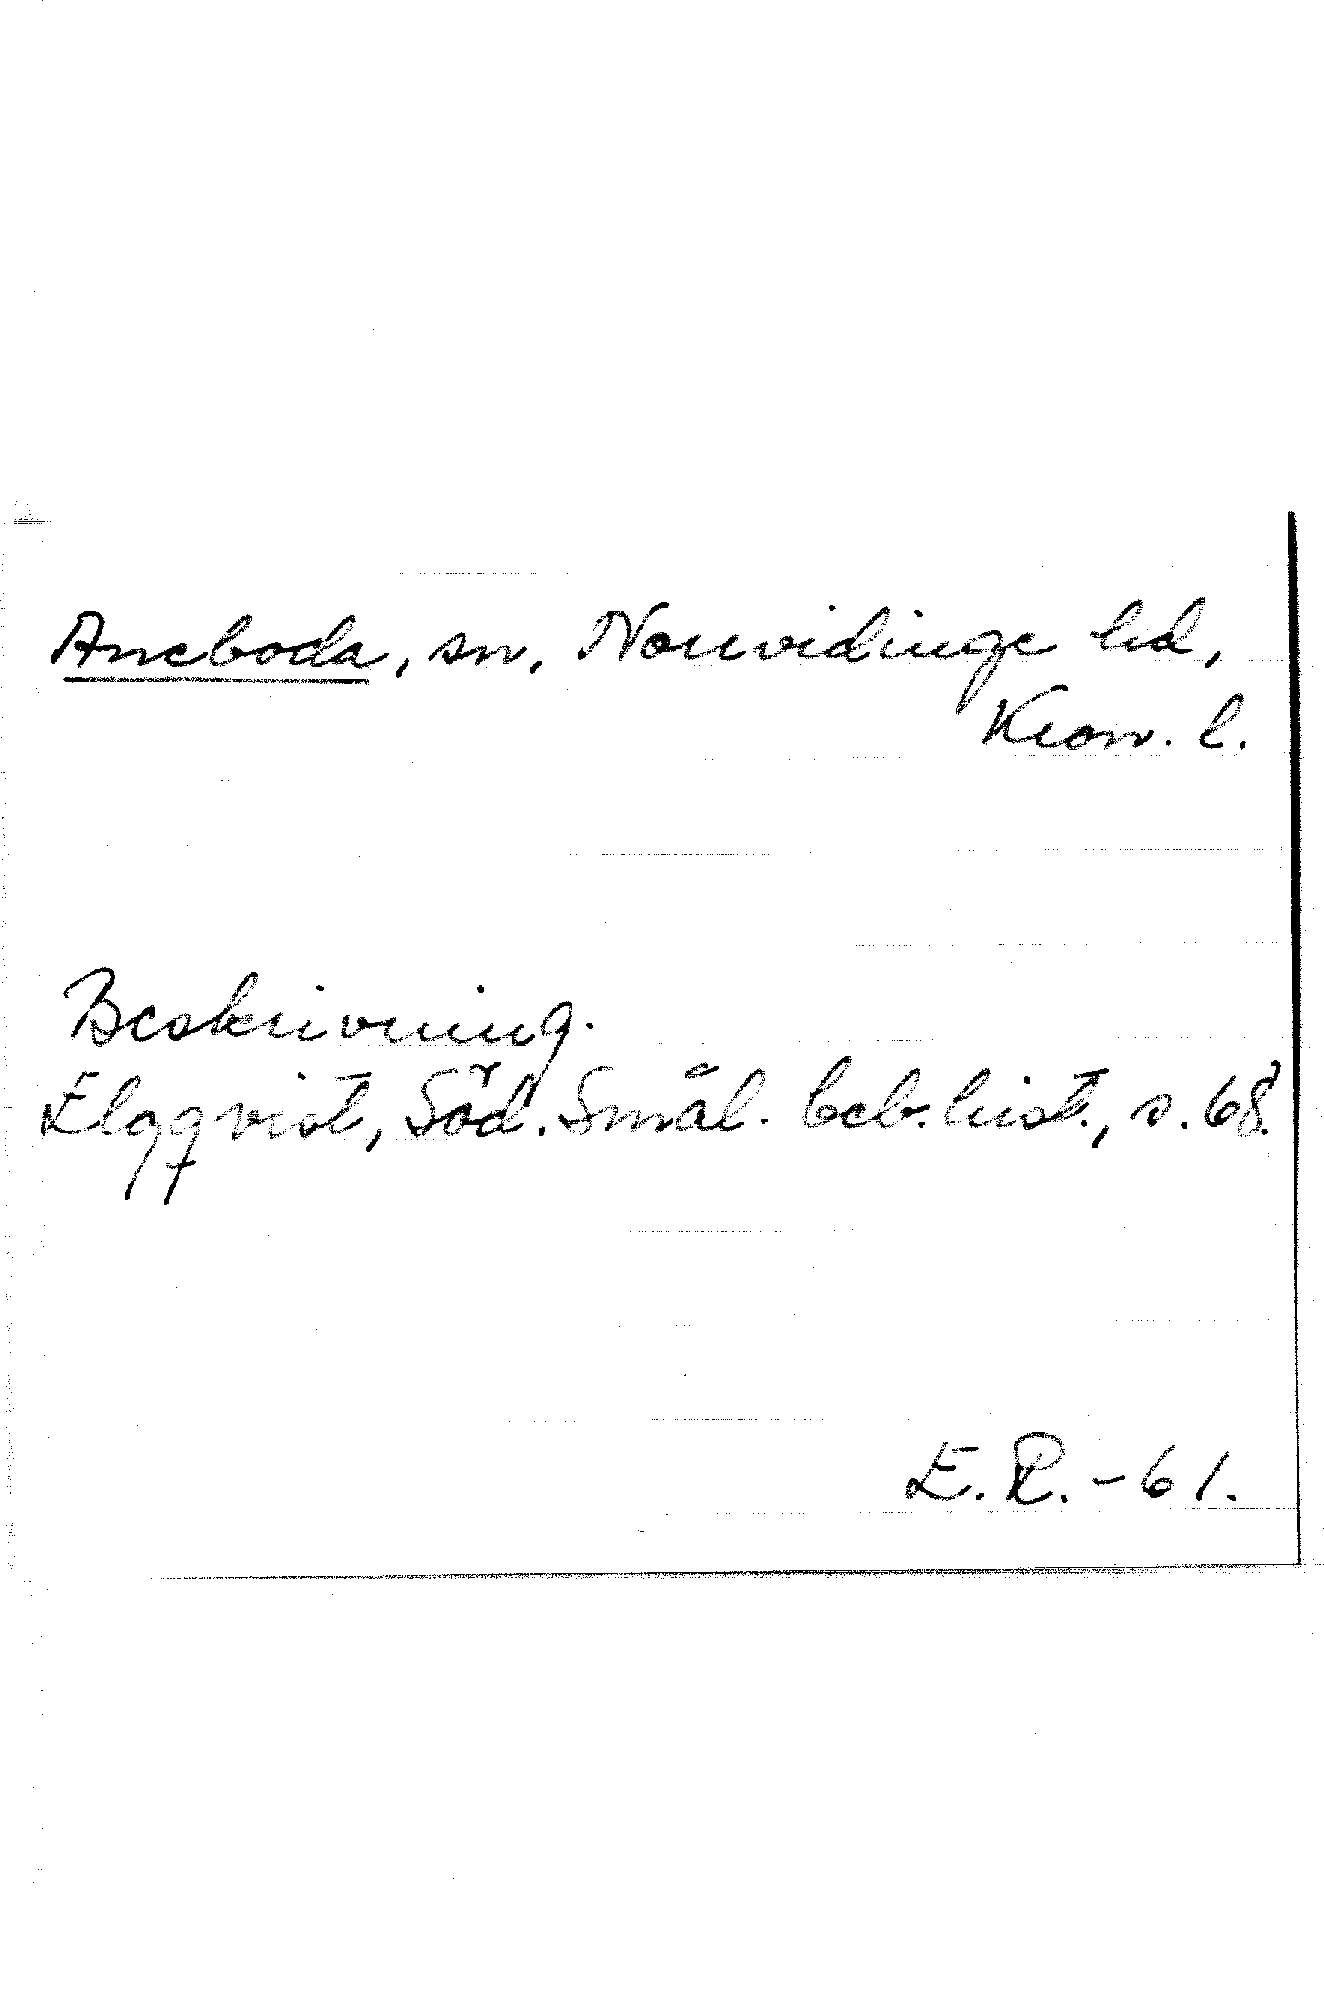 Aneboda, sn, Norrvidinge hd,
Kron. l.
Beskrivning.
Elgqvist, Söd. Smål. beb.hist., s. 68.
E. R. -61.